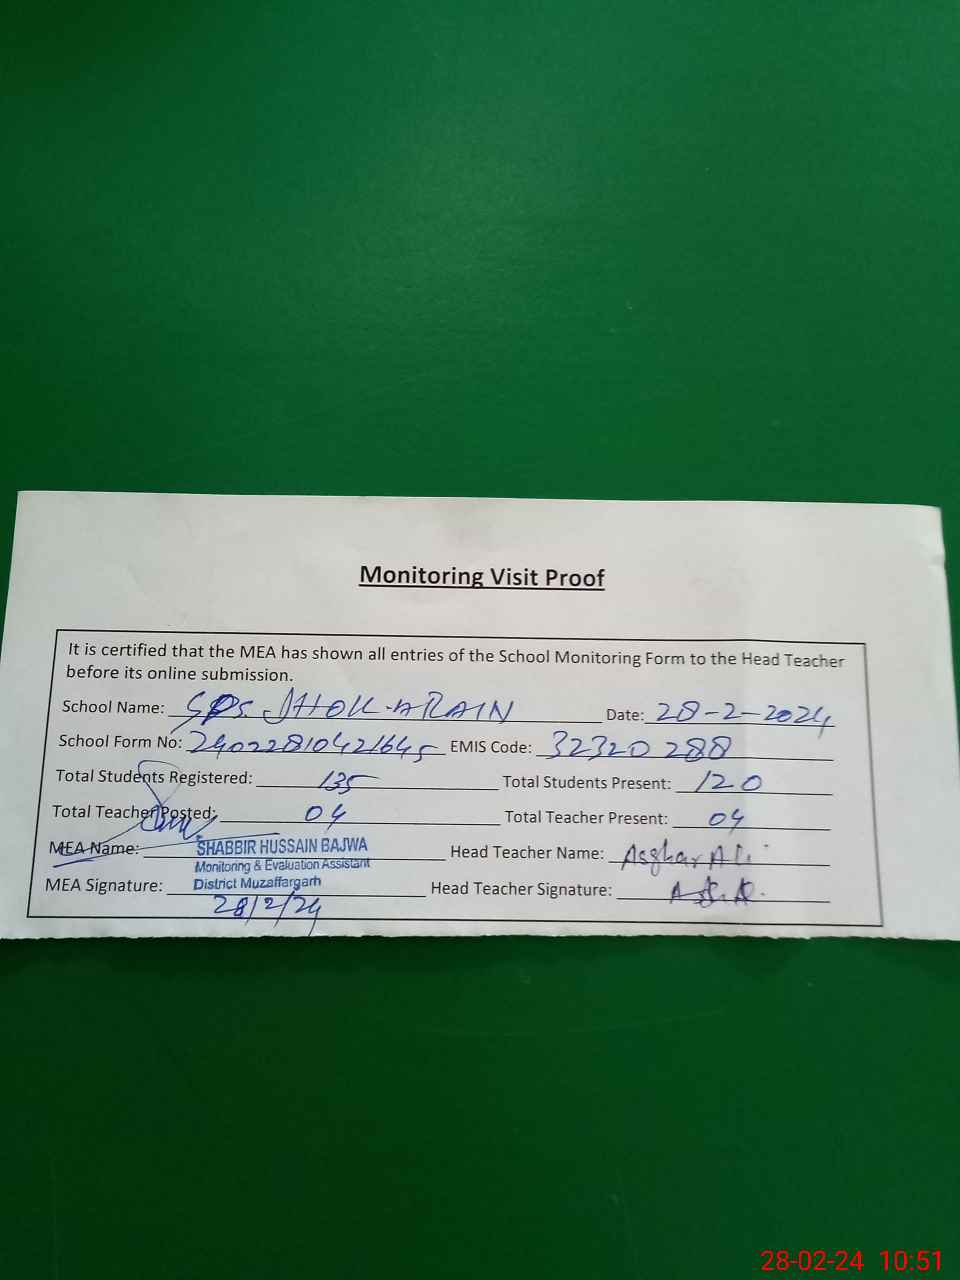 Monitoring Visit Proof
It is certified that the MEA has shown all entries of the School Monitoring Form to the Head Teacher
before its online submission.
School Name: GPS. JHOK-ARAIN Date: 28-2-2024
School Form No: 24022810421645 EMIS Code: 32320288
Total Students Registered: 135 Total Students Present: 120
Total Teacher Posted: 04 Total Teacher Present: 04
MEA Name: SHABBIR HUSSAIN BAJWA Head Teacher Name: Asghar Ali
Monitoring & Evaluation Assistant
MEA Signature: District Muzaffargarh Head Teacher Signature:
28/2/24
28-02-24 10:51